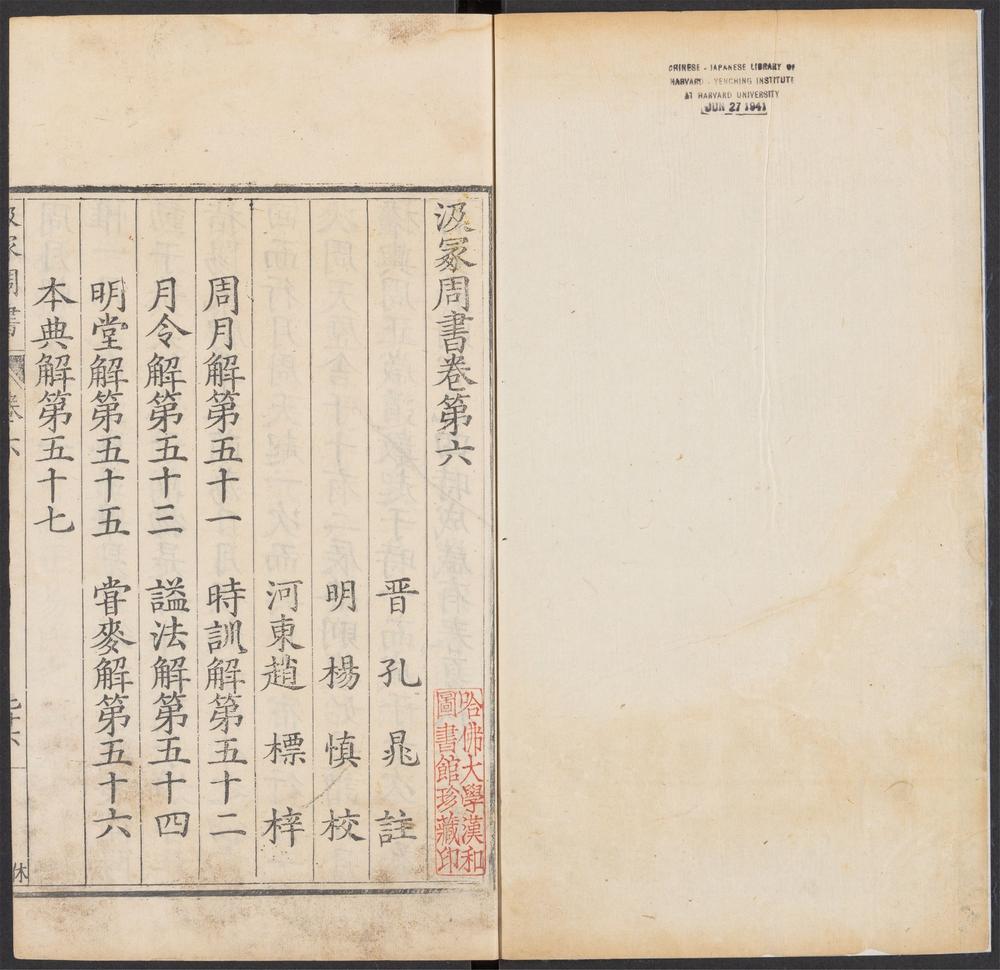 CHINESE - JAPANESE LIBRARY OF
HARVARD - YENCHING INSTITUTE
AT HARVARD UNIVERSITY
JUN 27 1941
汲冢周書卷第六
晋孔晁註
明楊慎校
河東趙標梓
周月解第五十一 時訓解第五十二
月令解第五十三 謚法解第五十四
明堂解第五十五 甞麥解第五十六
本典解第五十七
汲冢周書 卷六
休
哈佛大學漢和
圖書館珍藏印